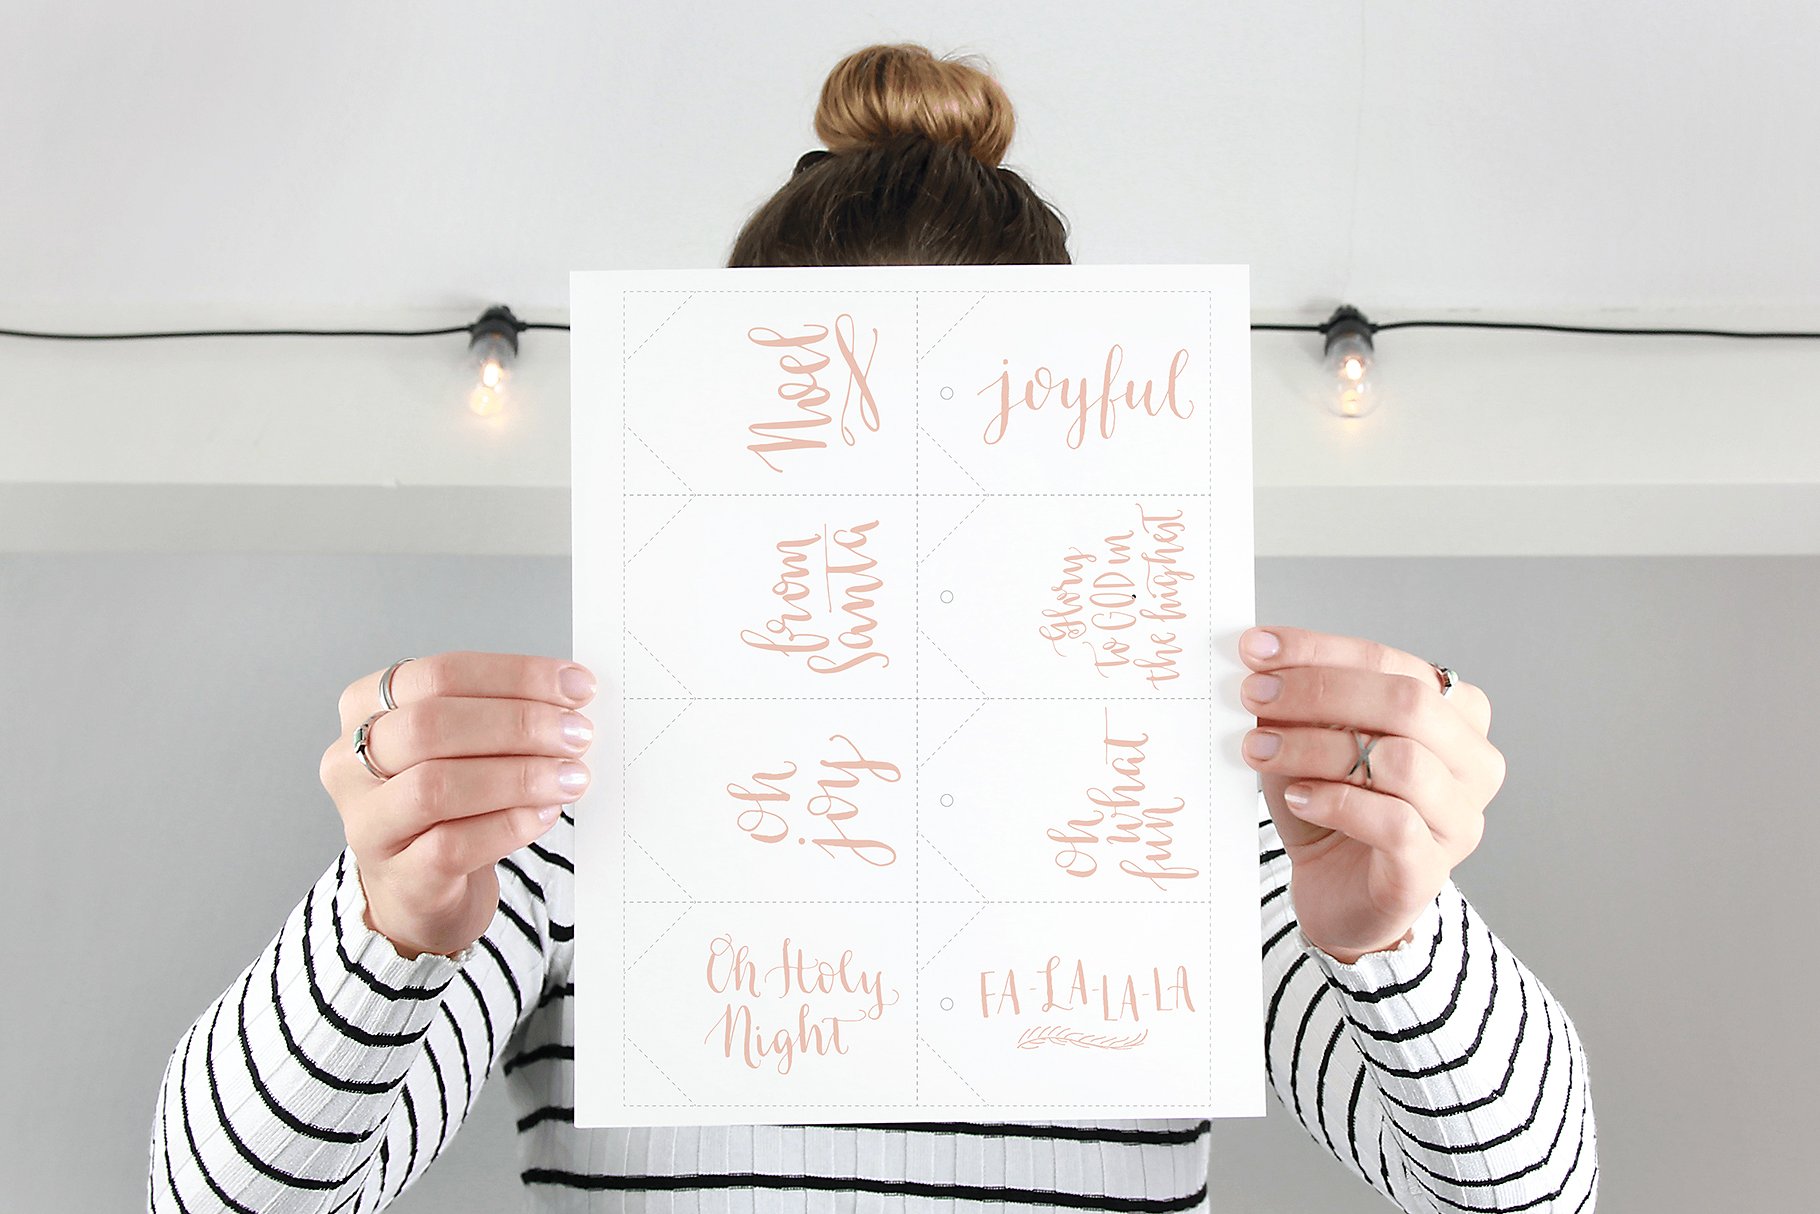 Noel
joyful
from
Santa
Glory
To GOD in
the highest
Oh
joy
Oh
what
fun
Oh Holy
Night
FA-LA-LA-LA